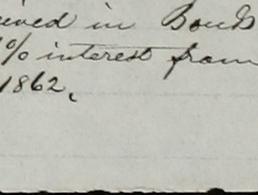 eived in Bonds
% interest from
1862,